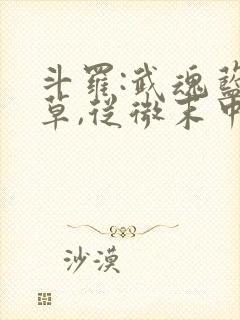 斗羅:武魂藍
草,從微末中
沙漠